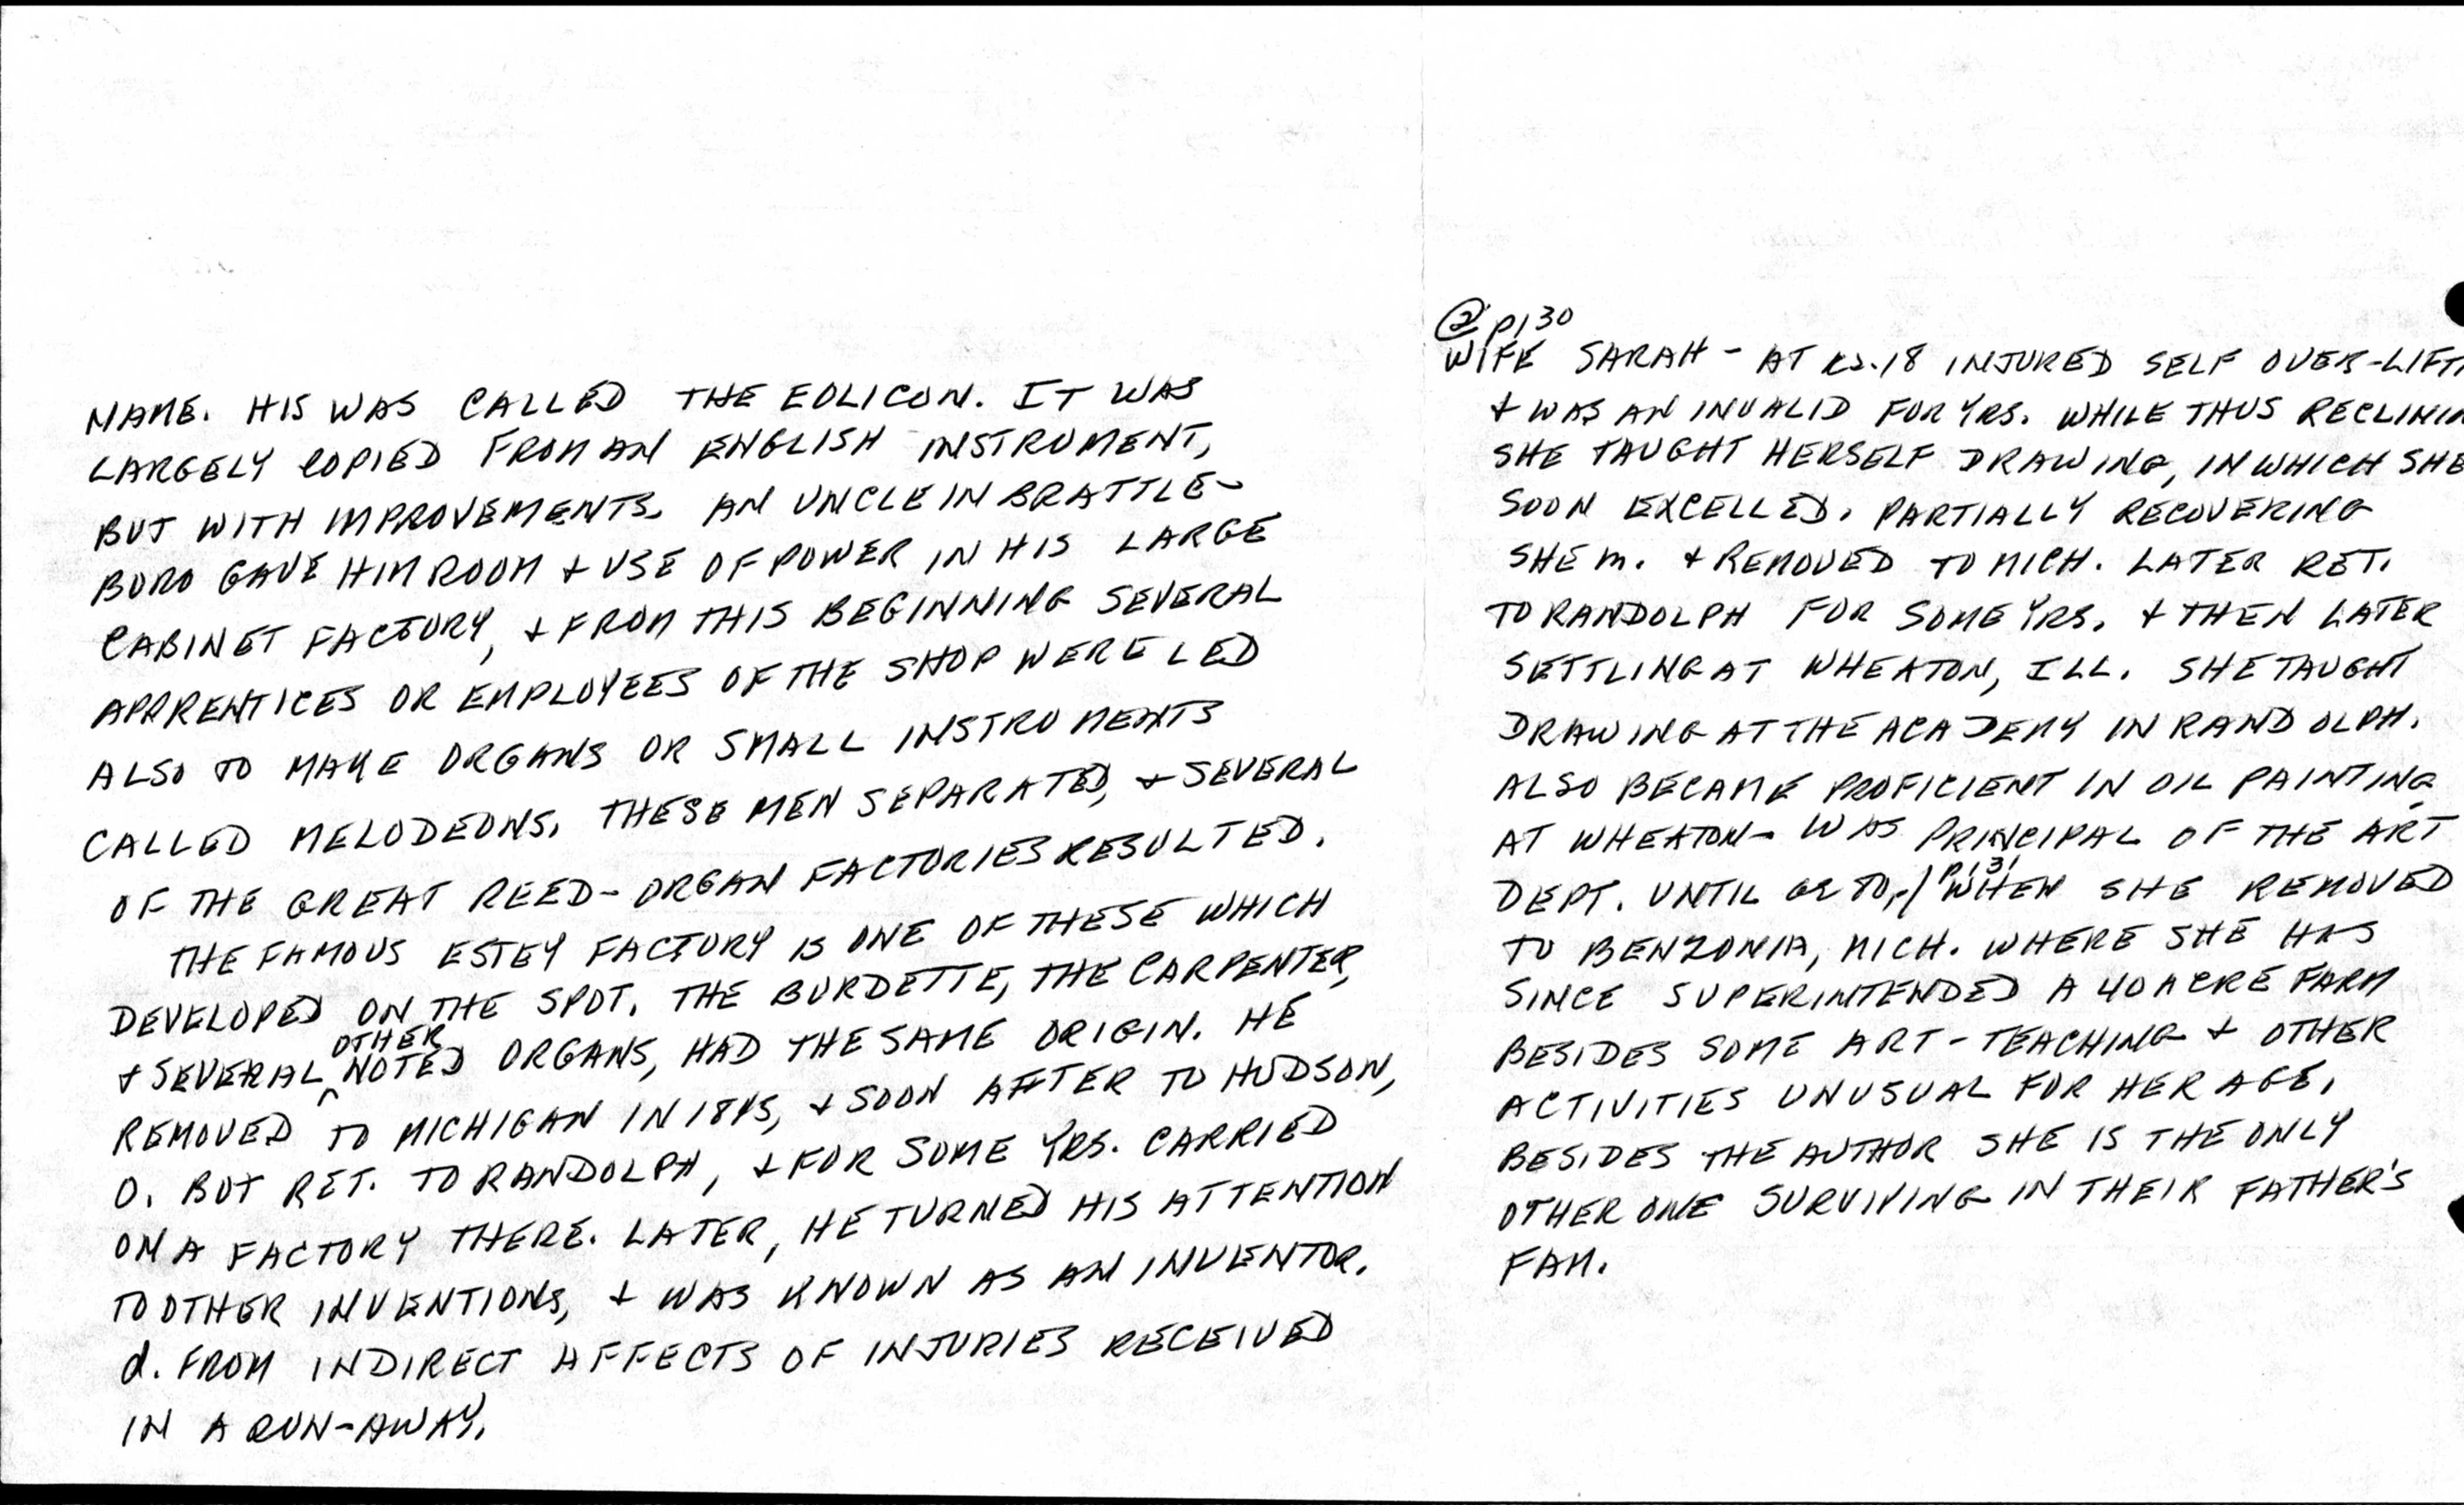 NAME. HIS WAS CALLED THE EOLICON. IT WAS
LARGELY COPIED FROM AN ENGLISH INSTRUMENT,
BUT WITH IMPROVEMENTS. AN UNCLE IN BRATTLE-
BORO GAVE HIM ROOM & USE OF POWER IN HIS LARGE
CABINET FACTORY, & FROM THIS BEGINNING SEVERAL
APPRENTICES OR EMPLOYEES OF THE SHOP WERE LED
ALSO TO MAKE ORGANS OR SMALL INSTRUMENTS
CALLED MELODEONS. THESE MEN SEPARATED, & SEVERAL
OF THE GREAT REED-ORGAN FACTORIES RESULTED.
THE FAMOUS ESTEY FACTORY IS ONE OF THESE WHICH
DEVELOPED ON THE SPOT. THE BURDETTE, THE CARPENTER,
& SEVERAL OTHER NOTED ORGANS, HAD THE SAME ORIGIN. HE
REMOVED TO MICHIGAN IN 1845, & SOON AFTER TO HUDSON,
O. BUT RET. TO RANDOLPH, & FOR SOME YRS. CARRIED
ON A FACTORY THERE. LATER, HE TURNED HIS ATTENTION
TO OTHER INVENTIONS, & WAS KNOWN AS AN INVENTOR.
d. FROM INDIRECT AFFECTS OF INJURIES RECEIVED
IN A RUN-AWAY.
@ p130
WIFE SARAH - AT 18 INJURED SELF OVER-LIFTI
& WAS AN INVALID FOR YRS. WHILE THUS RECLININ
SHE TAUGHT HERSELF DRAWING, IN WHICH SHE
SOON EXCELLED. PARTIALLY RECOVERING
SHE m. & REMOVED TO MICH. LATER RET.
TO RANDOLPH FOR SOME YRS. & THEN LATER
SETTLING AT WHEATON, ILL. SHE TAUGHT
DRAWING AT THE ACADEMY IN RANDOLPH.
ALSO BECAME PROFICIENT IN OIL PAINTING.
AT WHEATON - WAS PRINCIPAL OF THE ART
DEPT. UNTIL 70,/ p.131 WHEN SHE REMOVED
TO BENZONIA, MICH. WHERE SHE HAS
SINCE SUPERINTENDED A 40 ACRE FARM
BESIDES SOME ART-TEACHING & OTHER
ACTIVITIES UNUSUAL FOR HER AGE.
BESIDES THE AUTHOR SHE IS THE ONLY
OTHER ONE SURVIVING IN THEIR FATHER'S
FAM.